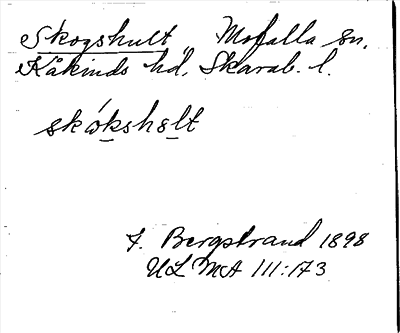 Skogshult, Mofalla sn.
Kåkinds hd. Skarab. l.
skókshɞlt
J. Bergstrand 1898
ULMA 111:173